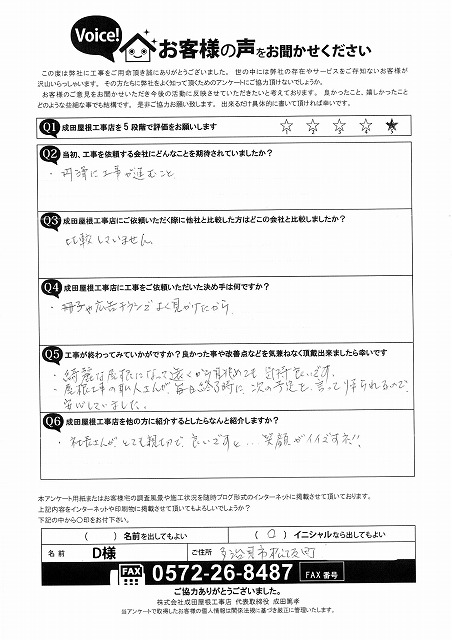 Voice!
お客様の声をお聞かせください
この度は弊社に工事をご用命頂き誠にありがとうございました。 世の中には弊社の存在やサービスをご存知ないお客様が
沢山いらっしゃいます。 その方たちに弊社をよく知って頂くためのアンケートにご協力頂けないでしょうか?
お客様のご意見をお聞かせいただき今後の活動に反映させていただきたいと考えております。 良かったこと、嬉しかったこと
どのような些細な事でも結構です。 是非ご協力お願い致します。 出来るだけ具体的に書いて頂ければ幸いです。
Q1 成田屋根工事店を5段階で評価をお願いします ☆ ☆ ☆ ☆ ★
Q2 当初、工事を依頼する会社にどんなことを期待されていましたか?
・円滑に工事が進むこと
Q3 成田屋根工事店にご依頼いただく際に他社と比較した方はどこの会社と比較しましたか?
比較していません
Q4 成田屋根工事店に工事をご依頼いただいた決め手は何ですか?
・冊子や広告チラシでよく見かけたから
Q5 工事が終わってみていかがですか?良かった事や改善点などを気兼ねなく頂戴出来ましたら幸いです
・綺麗な屋根になって遠くから眺めても気持良いです。
・屋根工事の職人さんが毎日終了時に、次の予定を言って帰られるので、
安心していました。
Q6 成田屋根工事店を他の方に紹介するとしたらなんと紹介しますか?
・社長さんがとても親切で良いですと…笑顔がイイですネ!!
本アンケート用紙またはお客様宅の調査風景や施工状況を随時ブログ形式のインターネットに掲載させて頂いております。
上記内容をインターネットや印刷物に掲載させて頂いてもよろしいでしょうか?
下記の中から〇印をお付下さい。
( ) 名前を出してもよい ( ○ ) イニシャルなら出してもよい
名前 D様 ご住所 多治見市松坂町
FAX 0572-26-8487 FAX番号
ご協力ありがとうございました。
株式会社成田屋根工事店 代表取締役 成田篤孝
※当アンケートで取得したお客様の個人情報は関係法規に基づき厳正に管理いたします。